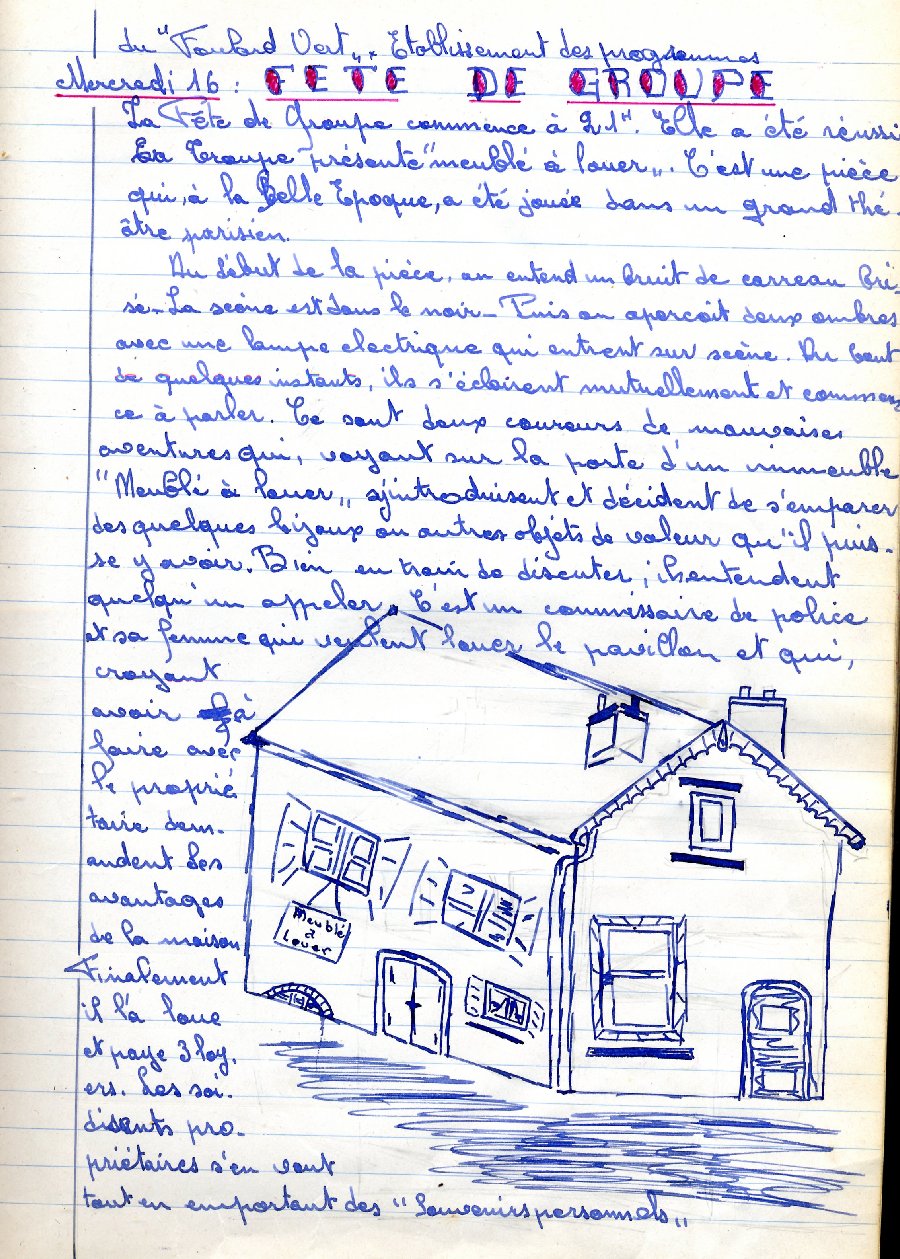 du "Foulard Vert". Etablissement des programmes
Mercredi 16 : FETE DE GROUPE
La Fête de Groupe commence à 21H. Elle a été réussi
La Troupe présente "meublé à louer". C'est une pièce
qui, à la Belle Epoque, a été jouée dans un grand thé-
âtre parisien.
Au début de la pièce, on entend un bruit de carreau bri-
sé. La scène est dans le noir. Puis on aperçoit deux ombres
avec une lampe electrique qui entrent sur scène. Au bout
de quelques instants, ils s'éclairent mutuellement et commen
ce à parler. Ce sont deux coureurs de mauvaises
aventures qui, voyant sur la porte d'un immeuble
"Meublé à louer" s'introduisent et décident de s'emparer
des quelques bijoux ou autres objets de valeur qu'il puis-
se y avoir. Bien en train de discuter, ils entendent
quelqu'un appeler. C'est un commissaire de police
et sa femme qui veulent louer le pavillon et qui,
croyant
avoir à
faire avec
le proprié
taire dem-
andent les
avantages
de la maison
Finalement
il la loue
et paye 3 loy.
ers. Les soi-
disants pro-
priétaires s'en vont
tout en emportant des "Souvenirs personnels"
Meublé
à
Louer